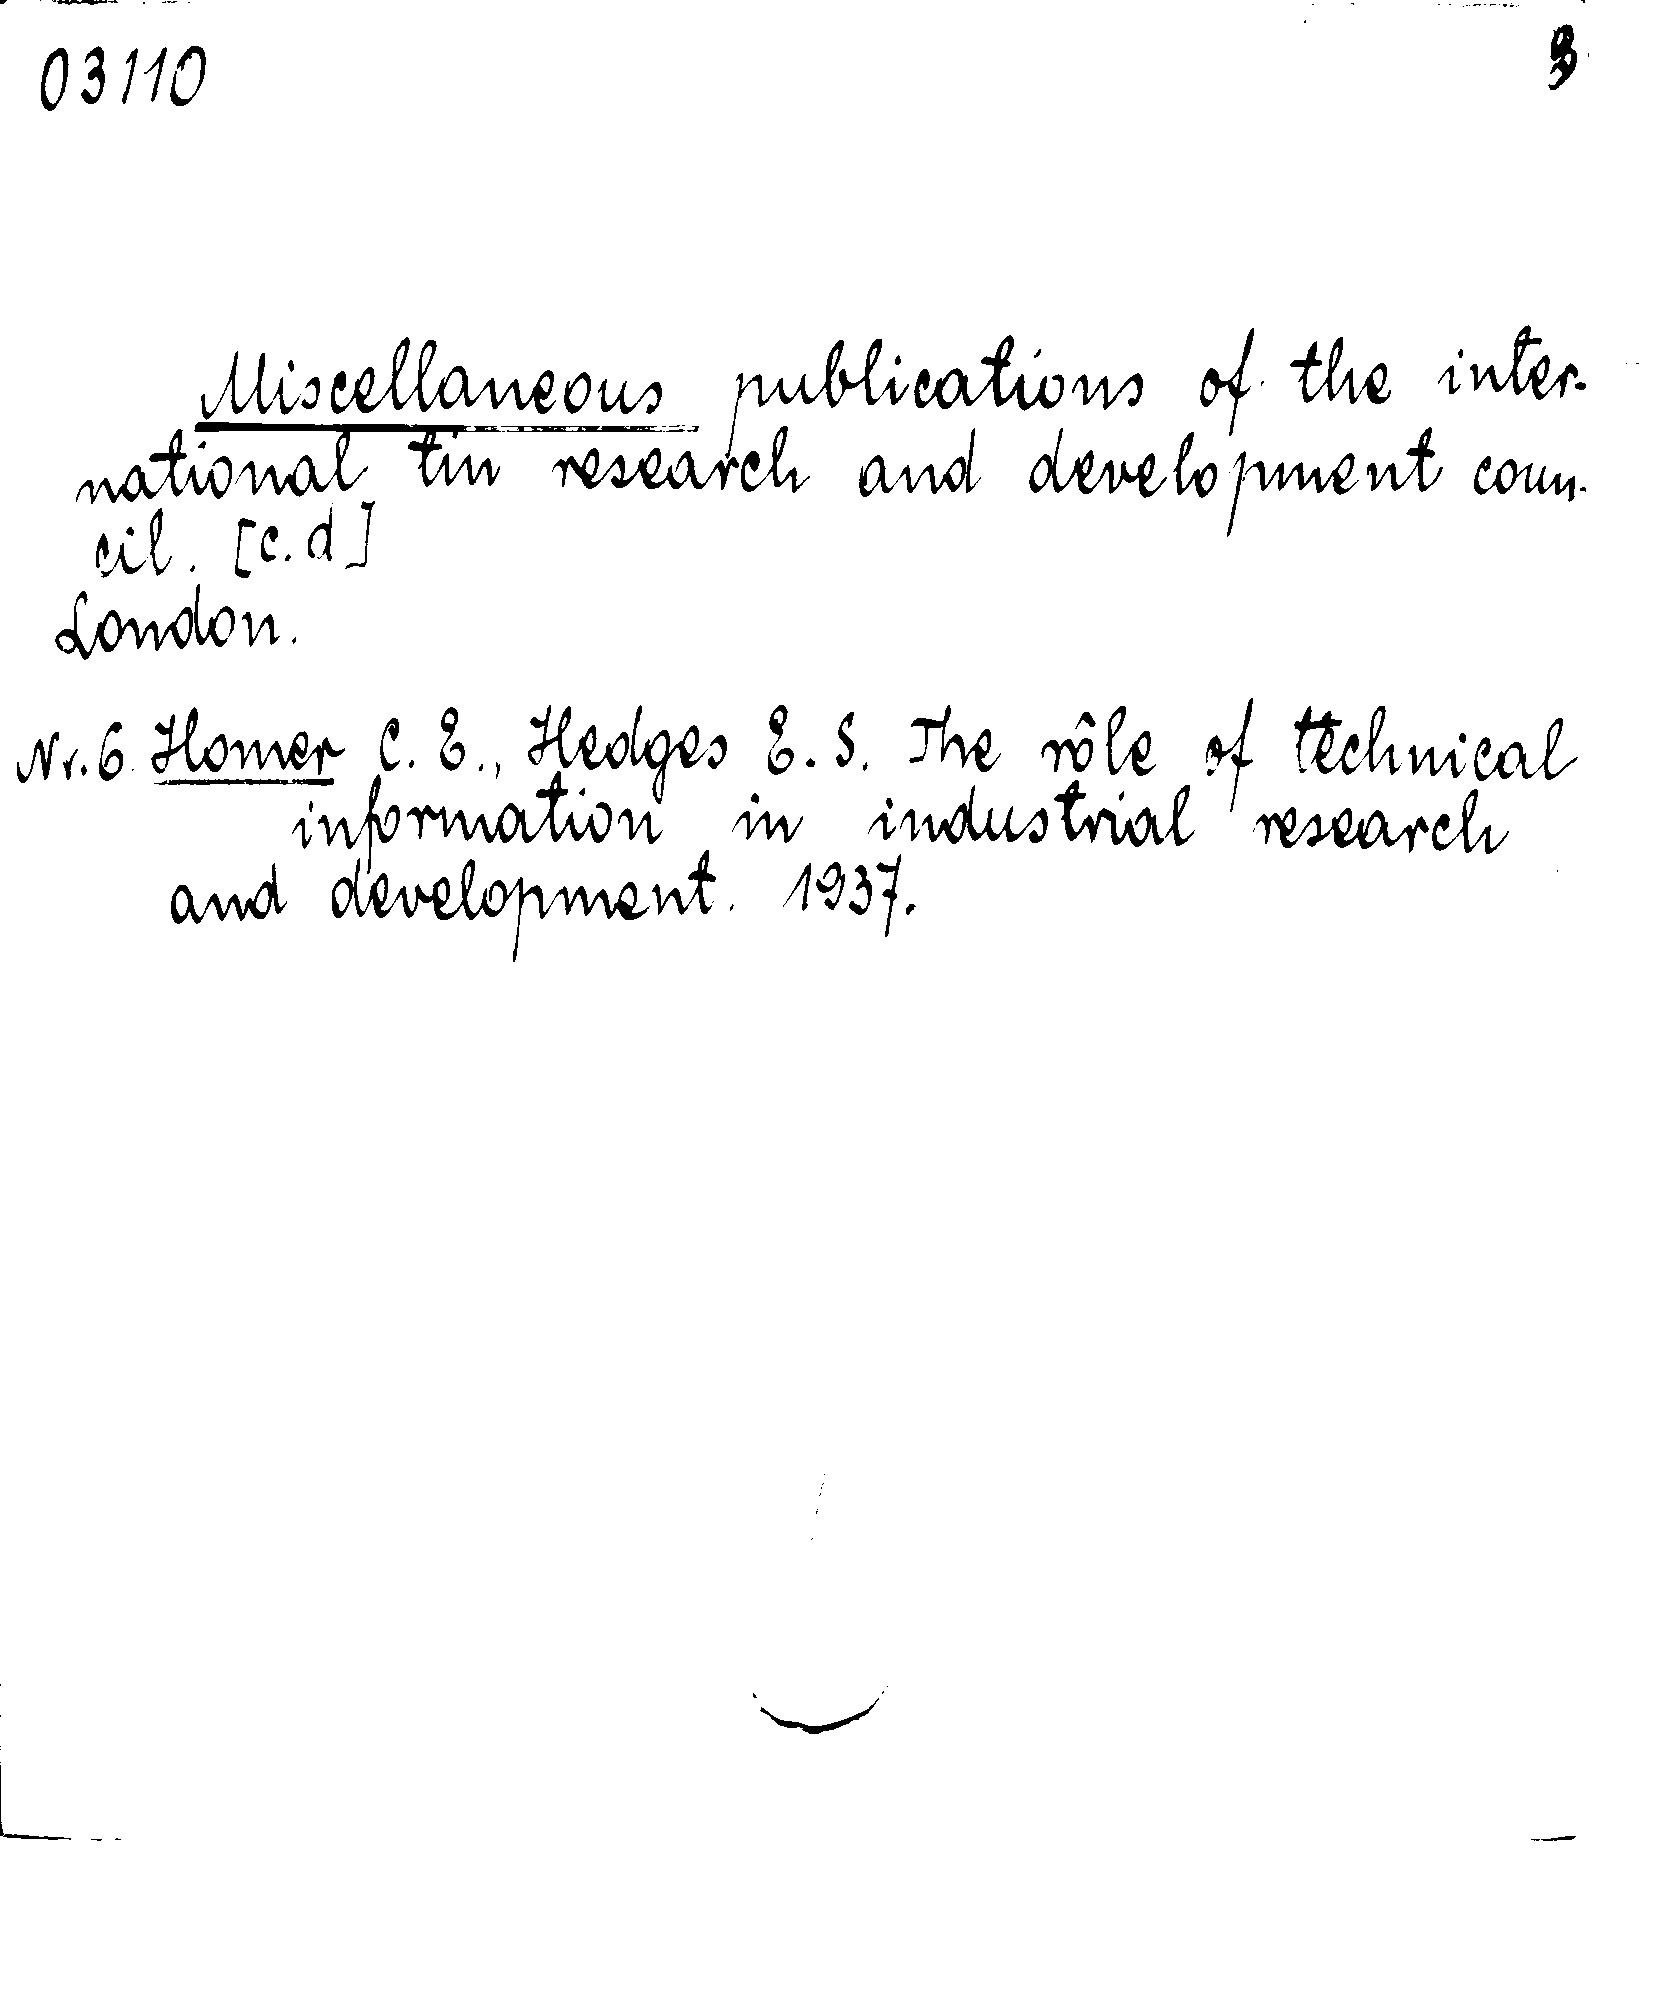 03110 3
Miscellaneous publications of the inter-
national tin research and development coun-
cil. [c.d]
London.
Nr. 6 Homer C. E., Hedges E. S. The rôle of technical
information in industrial research
and development. 1937.